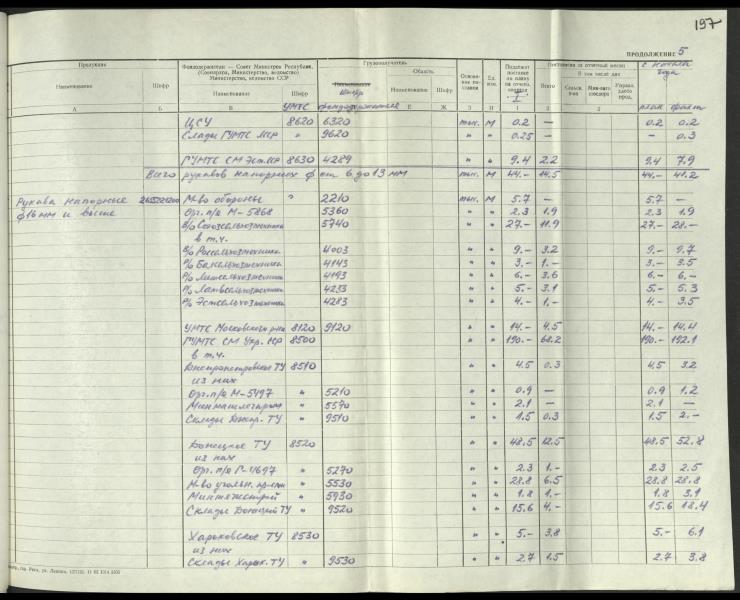 197
ПРОДОЛЖЕНИЕ 5
Продукция
Фондодержатели — Совет Министров Республики, (Совнархоз, Министерство, ведомство) Министерство, ведомство ССР
Грузополучатель
Поставлено за отчетный месяц
с начала года
Наименование Шифр Наименование Шифр Шифр
Область
Наименование Шифр
Ед. изм.
Подлежит поставке по плану
Всего
В том числе для
план факт
А Б В УМТС фондодержателя Е Ж З И 1 2
ЦСУ 8620 6320 тыс. м 0.2 — 0.2 0.2
Склады ГУМТС " 9620 " " 0.25 — — 0.3
ГУМТС СМ Эст.ССР 8630 4289 " " 9.4 2.2 9.4 7.9
Всего рукавов напорных ф от 6 до 13 мм тыс. м 44.— 14.5 44.— 41.2
Рукава напорные М-во обороны " 2210 тыс. м 5.7 — 5.7 —
ф16 мм и выше Орг. п/я М-5868 5360 " " 2.3 1.9 2.3 1.9
В/о Союзсельхозтехника 5740 " " 27.— 11.9 27.— 28.—
в т.ч.
В/о Россельхозтехника 4003 " " 9.— 3.2 9.— 9.7
Р/о Белсельхозтехника 4143 " " 3.— 1.— 3.— 3.5
Р/о Литсельхозтехника 4193 " " 6.— 3.6 6.— 6.—
Р/о Латвсельхозтехника 4233 " " 5.— 3.1 5.— 5.3
Р/о Эстсельхозтехника 4283 " " 4.— 1.— 4.— 3.5
УМТС Московского р-на 8120 9120 " " 14.— 4.5 14.— 14.4
ГУМТС СМ Укр. ССР 8500 " " 190.— 68.2 190.— 192.1
в т.ч.
Днепропетровское ТУ 8510 " " 4.5 0.3 4.5 3.2
из них
Орг. п/я М-5497 " 5210 " " 0.9 — 0.9 1.2
" 5570 " " 2.1 — 2.1 —
Склады Днепр. ТУ " 9510 " " 1.5 0.3 1.5 2.—
Донецкое ТУ 8520 " " 48.5 12.5 48.5 52.8
из них
Орг. п/я Г-4697 " 5270 " " 2.3 1.— 2.3 2.5
М-во угольн. пр-сти " 5530 " " 28.8 6.5 28.8 28.8
Минтяжстрой " 5930 " " 1.8 1.— 1.8 3.1
Склады Донецкий ТУ " 9520 " " 15.6 4.— 15.6 18.4
Харьковское ТУ 8530 " " 5.— 3.8 5.— 6.1
из них
Склады Харьк. ТУ " 9530 " " 2.7 1.5 2.7 3.8